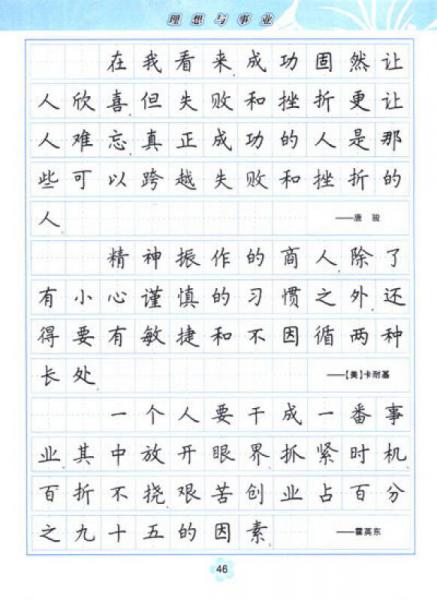 理想与事业
在我看来成功固然让
人欣喜.但失败和挫折更让
人难忘.真正成功的人是那
些可以跨越失败和挫折的
人.
——唐骏
精神振作的商人除了
有小心谨慎的习惯之外.还
得要有敏捷和不因循两种
长处.
——【美】卡耐基
一个人要干成一番事
业.其中放开眼界.抓紧时机.
百折不挠.艰苦创业占百分
之九十五的因素.
——霍英东
46